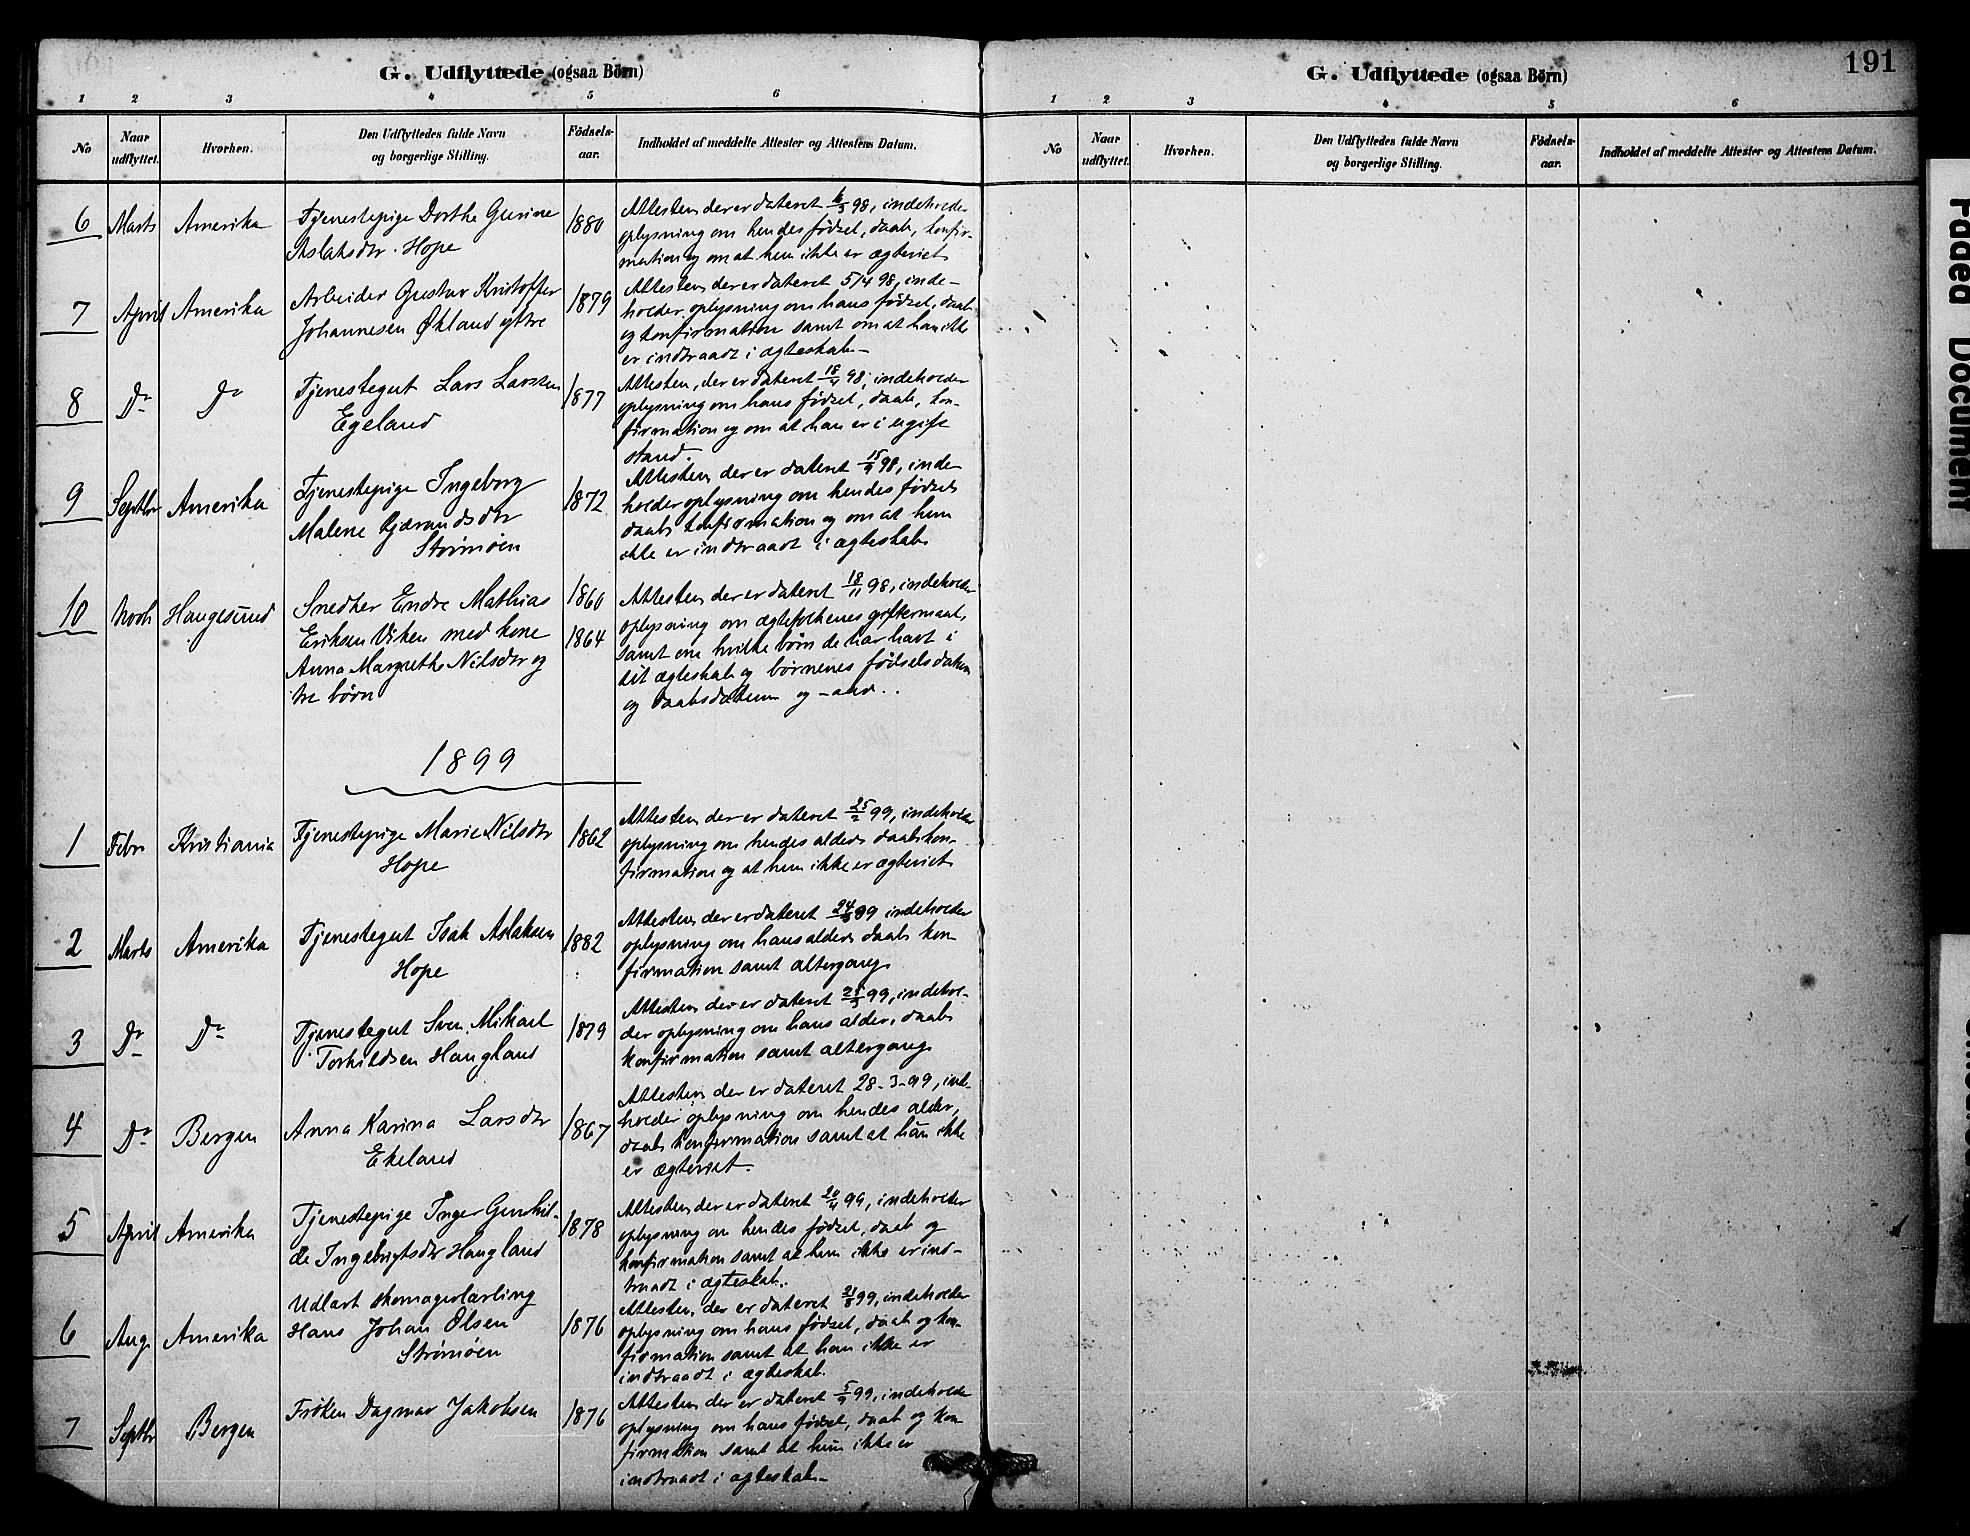 G. Udflyttede (ogsaa Börn)
1 2 3 4 5 6
No Naar udflyttet. Hvorhen. Den Udflyttedes fulde Navn og borgerlige Stilling. Födsels-aar. Indholdet af meddelte Attester og Attestens Datum.
6 Marts Amerika Tjenestepige Dorthe Gurine 1880 Attesten der er dateret 6/3 98, indeholder
Aslaksdtr. Hope oplysning om hendes fødsel, daab, konfir-
mation og om at hun ikke er ægteviet
7 April Amerika Arbeider Gustav Kristoffer 1879 Attesten der er dateret 5/4 98, inde-
Johannesen Økland ytre holder oplysning om hans fødsel, daab
og konfirmation samt om at han ikke
er indtraadt i ægteskab
8 Do Do Tjenestegut Lars Larsen 1877 Attesten, der er dateret 18/4 98, indeholder
Egeland oplysning om hans fødsel, daab, kon-
firmation og om at han er i ugift
stand.
9 Septbr Amerika Tjenestepige Ingeborg 1872 Attesten der er dateret 15/9 98, inde-
Malene Gjærandsdtr holder oplysning om hendes fødsel
Strømøen daab konfirmation og om at hun
ikke er indtraadt i ægteskab
10 Novb Haugesund Snedker Endre Mathias 1860 Attesten der er dateret 18/11 98, indeholder
Eriksen Viken med kone 1864 oplysning om ægtefolkenes giftermaal
Anna Margrethe Nilsdtr og samt om hvilke børn de har havt i
tre børn sit ægteskab og børnenes fødselsdatum
og daabsdatum og -aar.
1899
1 Febr Kristiania Tjenestepige Marie Nilsdtr 1862 Attesten der er dateret 25/2 99, indeholder
Hope oplysning om hendes alder daab kon-
firmation og at hun ikke er ægteviet
2 Marts Amerika Tjenestegut Isak Aslaksen 1882 Attesten der er dateret 24/3 99 indeholder
Hope oplysning om hans alder daab kon
firmation samt altergang
3 Do Do Tjenestegut Sven Mikael 1879 Attesten der er dateret 25/3 99, indehol-
Torkildsen Haugland der oplysning om hans alder, daab
konfirmation samt altergang
4 Do Bergen Anna Karina Larsdtr 1867 Attesten der er dateret 28-3-99, inde-
Ekeland holder oplysning om hendes alder,
daab konfirmation samt at hun ikke
er ægteviet.
5 April Amerika Tjenestepige Inger Gunhil- 1878 Attesten der er dateret 20/4 99, indeholder
de Ingebrigtsdtr Haugland oplysning om hendes fødsel, daab og
konfirmation samt at hun ikke er ind-
traadt i ægteskab.
6 Aug. Amerika Udlært skomagerlærling 1876 Attesten, der er dateret 21/8 99, indeholder
Hans Johan Olsen oplysning om hans fødsel, daab og kon-
Strømøen firmation samt at han ikke er
indtraadt i ægteskab.
7 Septbr Bergen Frøken Dagmar Jakobsen 1876 Attesten der er dateret 5/9 99, indeholder
oplysning om hans fødsel, daab og kon
firmation samt at hun ikke er
indtraadt i ægteskab
G. Udflyttede (ogsaa Börn)
191
1 2 3 4 5 6
No Naar udflyttet. Hvorhen. Den Udflyttedes fulde Navn og borgerlige Stilling. Födsels-aar. Indholdet af meddelte Attester og Attestens Datum.
Faded Document